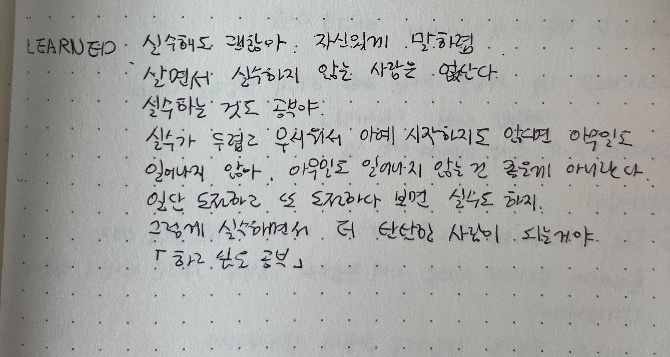 LEARNED 실수해도 괜찮아. 자신있게 말하렴
살면서 실수하지 않는 사람은 없단다
실수하는 것도 공부야
실수가 두렵고 우서워서 아예 시작하지도 않다면 아무일도
일어나지 않아. 아무일도 일어나지 않는 건 좋은게 아니란다.
일단 도전하고 또 도전하다 보면 실수도 하지.
그렇게 실수하면서 더 단단한 사람이 되는거야
「하고 싶은 공부」